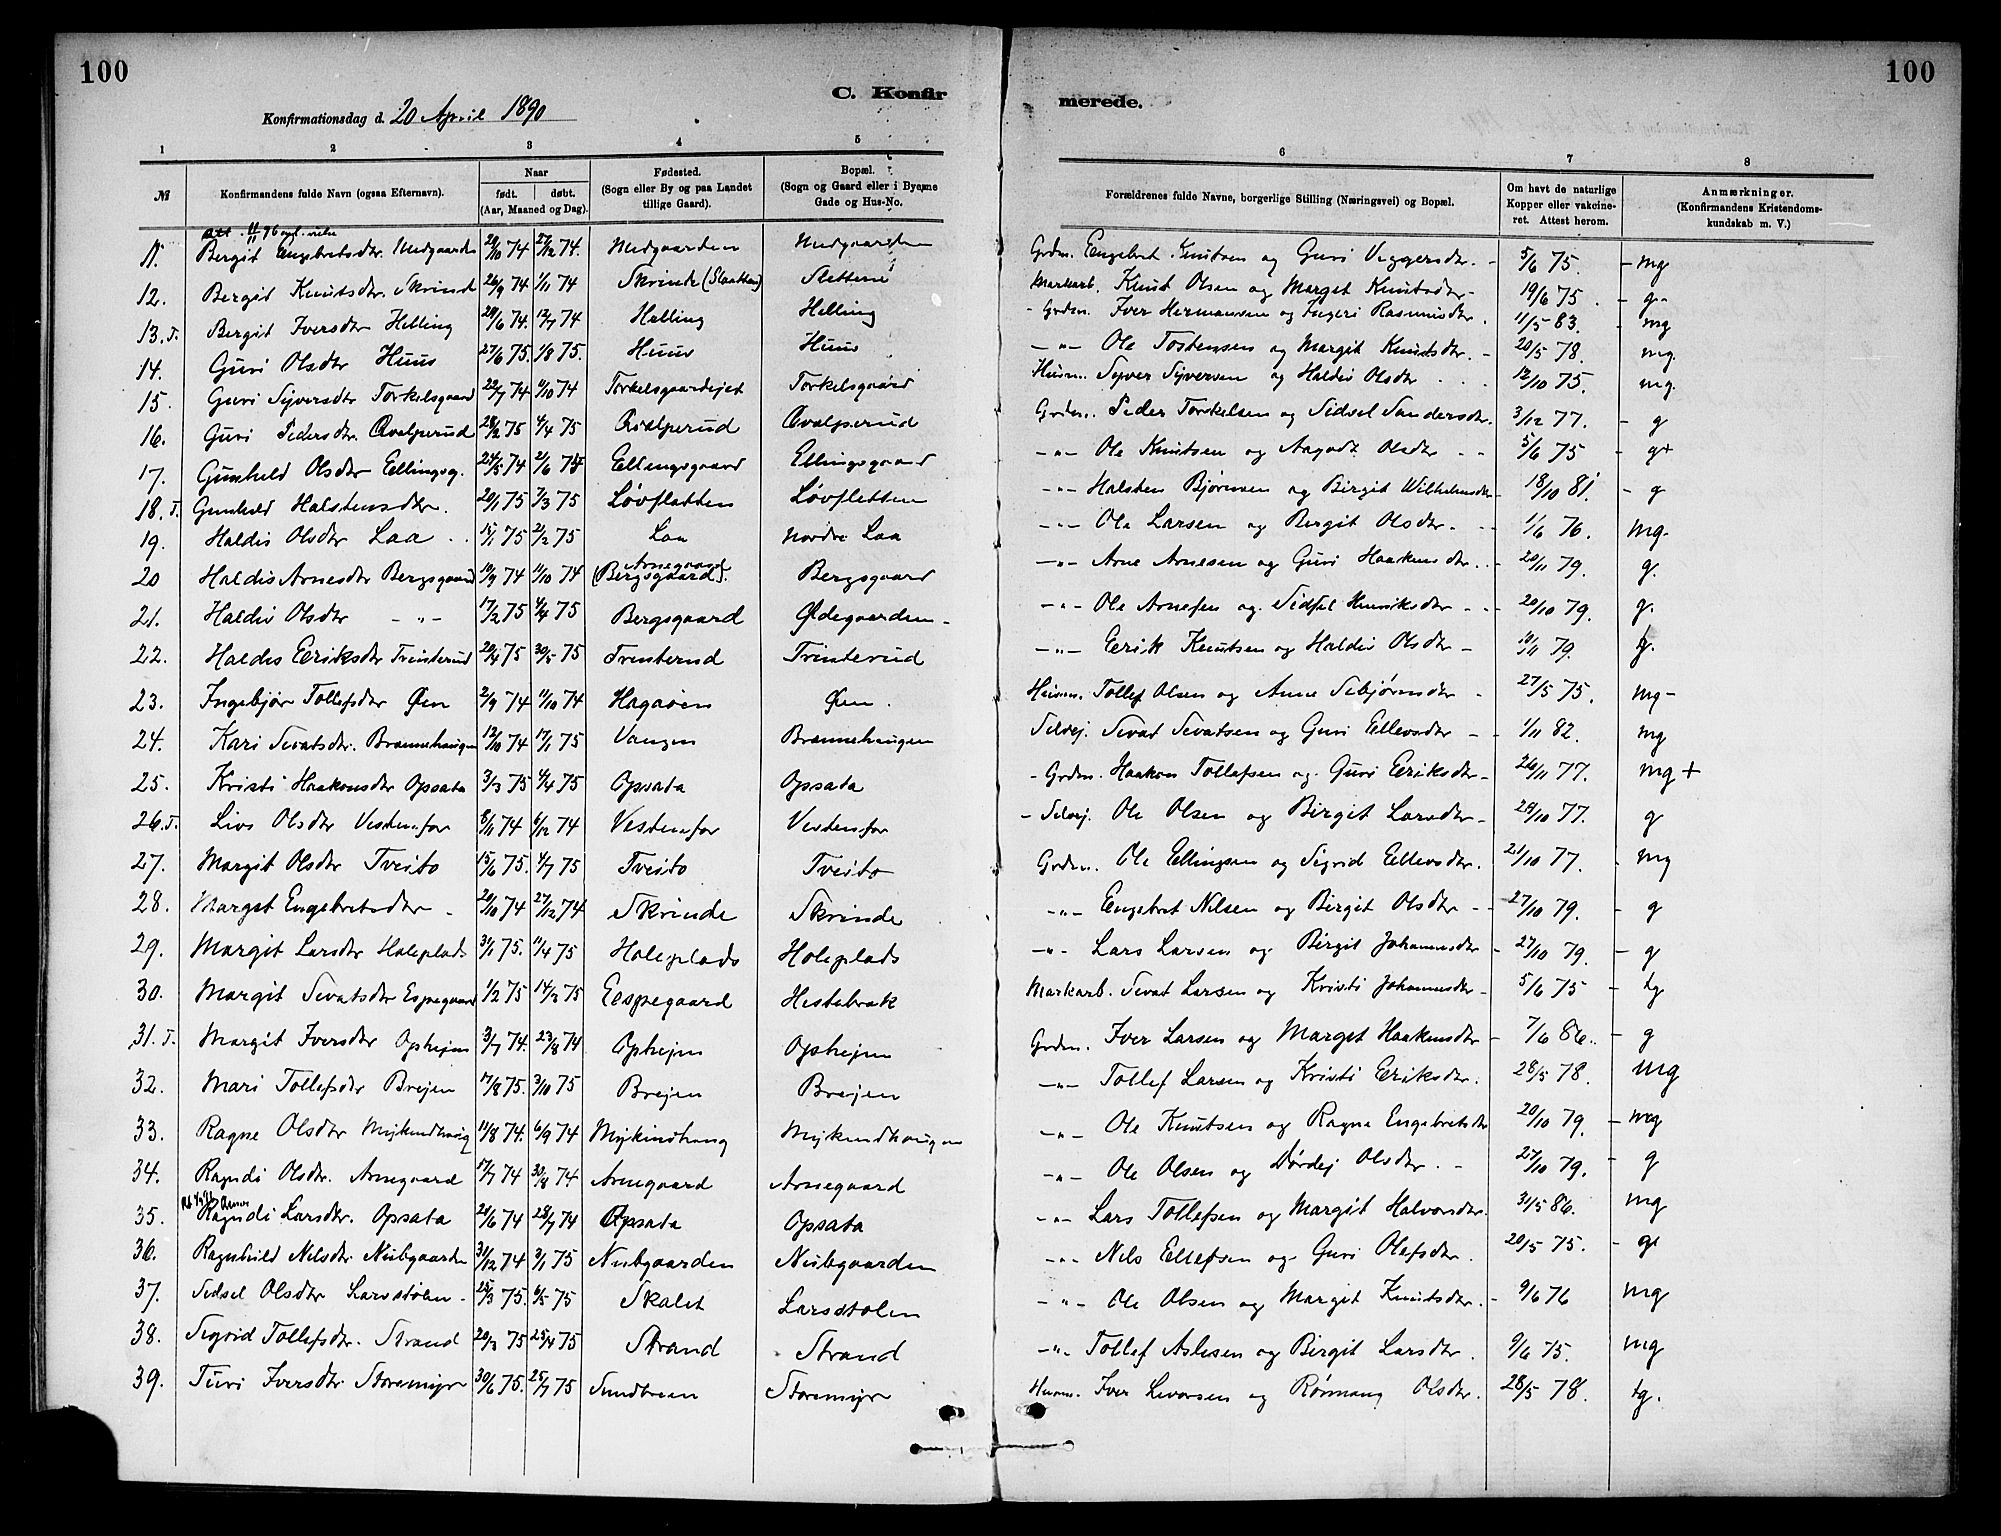 100
100
C. Konfir
merede.
Konfirmationsdag d. 20 April 1890
1 2 3 4 5 6 7 8
№ Konfirmandens fulde Navn (ogsaa Efternavn). Naar født. døbt. (Aar, Maaned og Dag). Fødested. (Sogn eller By og paa Landet tillige Gaard). Bopæl. (Sogn og Gaard eller i Byerne Gade og Hus-No. Forældrenes fulde Navne, borgerlige Stilling (Næringsvei) og Bopæl. Om havt de naturlige Kopper eller vakcineret. Attest herom. Anmærkninger. (Konfirmandens Kristendomskundskab m. V.)
11. Bergit Engebretsdtr. Medgaarden 20/10 74 27/12 74. Medgaarden Medgaarden Grdm. Engebret Knutsen og Guri Viggersdtr. - 5/6 75. - mg
12. Bergit Knutsdtr. Skrind 26/9 74 1/11 74 Skrinde (Slaatten) Slettene Markarb. Knut Olsen og Marget Knutsdtr - 19/6 75. - g-
13. T. Bergit Iversdtr Helling 28/6 74. 12/7 74 Helling Helling - Grdm. Iver Hermansen og Ingeri Rasmusdtr. 11/5 83. - mg
14. Guri Olsdtr Huus 27/6 75. 1/8 75. Huus Huus -"- Ole Tostensen og Margit Knutsdtr. - 20/5 78. mg.
15. Guri Syversdtr Torkelsgaard 22/7 74 11/10 74 Torkelsgaardejet Torkelsgaard Husm. Syver Syversen og Haldis Olsdtr . . . 12/10 75. mg.
16. Guri Pedersdtr. Qvalperud 28/2 75 4/4 75 Qvalperud Qvalperud Grdm. Peder Torkelsen og Sidsel Sandersdtr. 3/12 77. - g
17. Gunhild Olsdtr Ellingsg. 24/5 74 2/6 74 Ellingsgaard Ellingsgaard -"- Ole Knutsen og Aagodt Olsdtr - - 5/6 75 - g+
18. T. Gunhild Halstensdtr. 20/1 75 7/3 75 Løvfletten Løvfletten -"- Halsten Bjørnsen og Birgit Wilhelmsdtr 18/10 81. - g
19. Haldis Olsdtr Laa . . 15/1 75 2/2 75 Laa Nordre Laa -"- Ole Larsen og Bergit Olsdtr. - 1/6 76. mg-
20 Haldis Arnesdtr Bergsgaard 10/9 74 11/10 74 Arnegaard (Bergsgaard). Bergsgaard -"- Arne Arnesen og Guri Haakensdtr. . 20/11 79. g.
21. Haldis Olsdtr -"- 17/2 75 4/4 75 Bergsgaard Ødegaarden - -"- Ole Arnesen og Sidsel Henriksdtr - - 20/10 79. g.
22. Haldis Eeriksdtr Trinterud 20/4 75 30/5 75 Trinterud Trinterud -"- Eerik Knutsen og Haldis Olsdtr - 19/11 79.
23. Ingebjør Tollefsdtr Øen 2/9 74 11/10 74 Hagaøen Øen. Husm. Tollef Olsen og Anne Sebjørnsdtr - 27/5 75. mg-
24. Kari Sevatsdtr. Brænnehaugen 12/10 74 17/1 75 Vangen Brænnehaugen Selvej. Sevat Sevatsen og Guri Ellevsdtr - - 1/11 82. mg
25. Kristi Haakonsdtr Opsata 3/3 75 4/4 75 Opsata Opsata - Grdm. Haakon Tollefsen og Guri Eeriksdtr - 26/11 77. mg+
26. T. Livs Olsdtr Vestenfor 8/11 74 6/12 74 Vestenfor Vestenfor - Selvej. Ole Olsen og Birgit Larsdtr - 29/10 77. g
27. Margit Olsdtr Tveito 15/6 75. 4/7 75 Tveito Tveito Grdm. Ole Ellingsen og Sigrid Ellevsdtr. 21/10 77. - mg
28. Marget Engebretsdtr - 20/10 74 27/12 74 Skrinde Skrinde -"- Engebret Nilsen og Birgit Olsdtr - - 27/10 79. - g
29. Margit Larsdtr Holeplads 31/1 75. 11/4 75 Holeplads Holeplads -"- Lars Larsen og Birgit Johannesdtr - 27/10 79. - g
30. Margit Sevatsdtr Espegaard 1/2 75 14/3 75 Eespegaard Hestebræk Markarb. Sevat Larsen og Kristi Johannesdtr - 5/6 75 - tg
31. T. Margit Iversdtr Ophejen 3/7 74. 23/8 74 Ophejen Ophejen Grdm. Iver Larsen og Marget Haakensdtr - 7/6 86.. - g
32. Mari Tollefsdtr Brejen 17/8 75. 3/10 75 Brejen Brejen -"- Tollef Larsen og Kristi Eeriksdtr. 28/5 78. mg
33. Ragne Olsdtr Mykindhaug 11/8 74. 6/9 74 Myking­haug Myking­haugen -"- Ole Knutsen og Ragna Engebretsdtr 20/10 79. - mg
34. Ragndi Olsdtr. Arnegaard 17/7 74 30/8 74. Arnegaard Arnegaard -"- Ole Olsen og Dørdej Olsdtr. - 27/10 79. - g
35. Ragndi Larsdtr. Opsata 21/6 74 28/7 74 Opsata Opsata -"- Lars Tollefsen og Margit Halvorsdtr. 31/5 86. mg
36. Ragnhild Nilsdtr. Nubgaarden 31/12 74 3/1 75 Nubgaarden Nubgaarden -"- Nils Ellefsen og Guri Olefsdtr. 20/5 75. - g
37. Sidsel Olsdtr Larsstølen - 25/3 75. 6/5 75 Skalet Larsstølen -"- Ole Olsen og Margit Knutsdtr. - 9/6 76 mg
38. Sigrid Tollefsdtr. Strand 20/3 75 25/4 75 Strand Strand -"- Tollef Aslesen og Birgit Larsdtr. 9/6 75. mg
39. Turi Iversdtr. Storemyr 30/6 75. 25/7 75 Sundbreen Storemyr Husm. Iver Levorsen og Rønnaug Olsdtr. 28/5 78. tg.